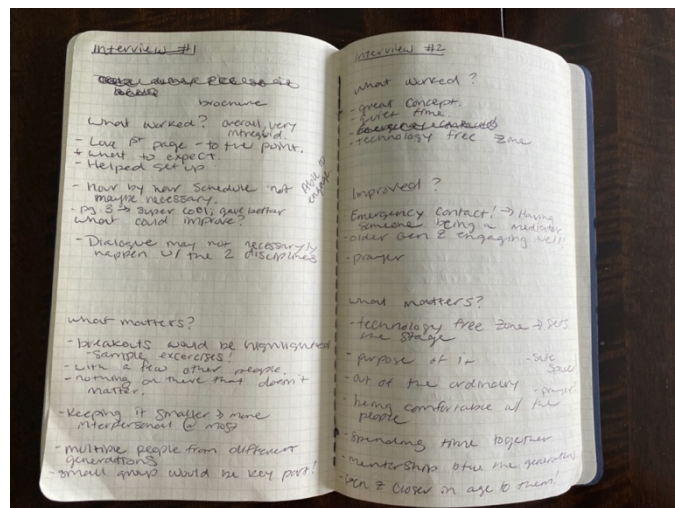 Interview #1
brochure
What worked? overall, very intrigued.
- Love 1st page - to the point.
+ what to expect.
- Helped set up
- Hour by hour schedule not
maybe necessary.
- pg. 3 → super cool, gave
what could improve?
- Dialogue may not necessarily
happen w/ the 2 disciplines
Able to
engage
what matters?
- breakouts would be highlighted
- sample excercises!
- with a few other people.
- nothing on there that doesn't
matter.
- Keeping it smaller → more
interpersonal @ most
- multiple people from different
generations
- small group would be key part!
Interview #2
what worked?
- great concept.
- quiet time
- technology free zone
Improved?
Emergency contact! → Having
someone being a mediator
- older Gen Z engaging well!
- prayer
what matters?
- technology free zone → sets
the stage
- purpose of it
- out of the ordinary
- prayer
- being comfortable w/ the
people
- spending time together
- mentorship btw the generations
- Gen Z closer in age to them!